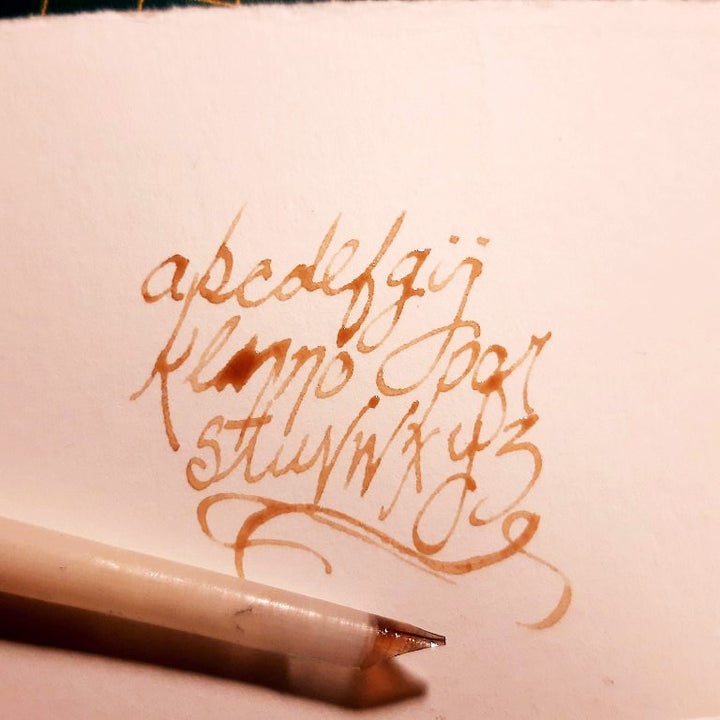 abcdefgij
klmno pqr
stuvwxyz